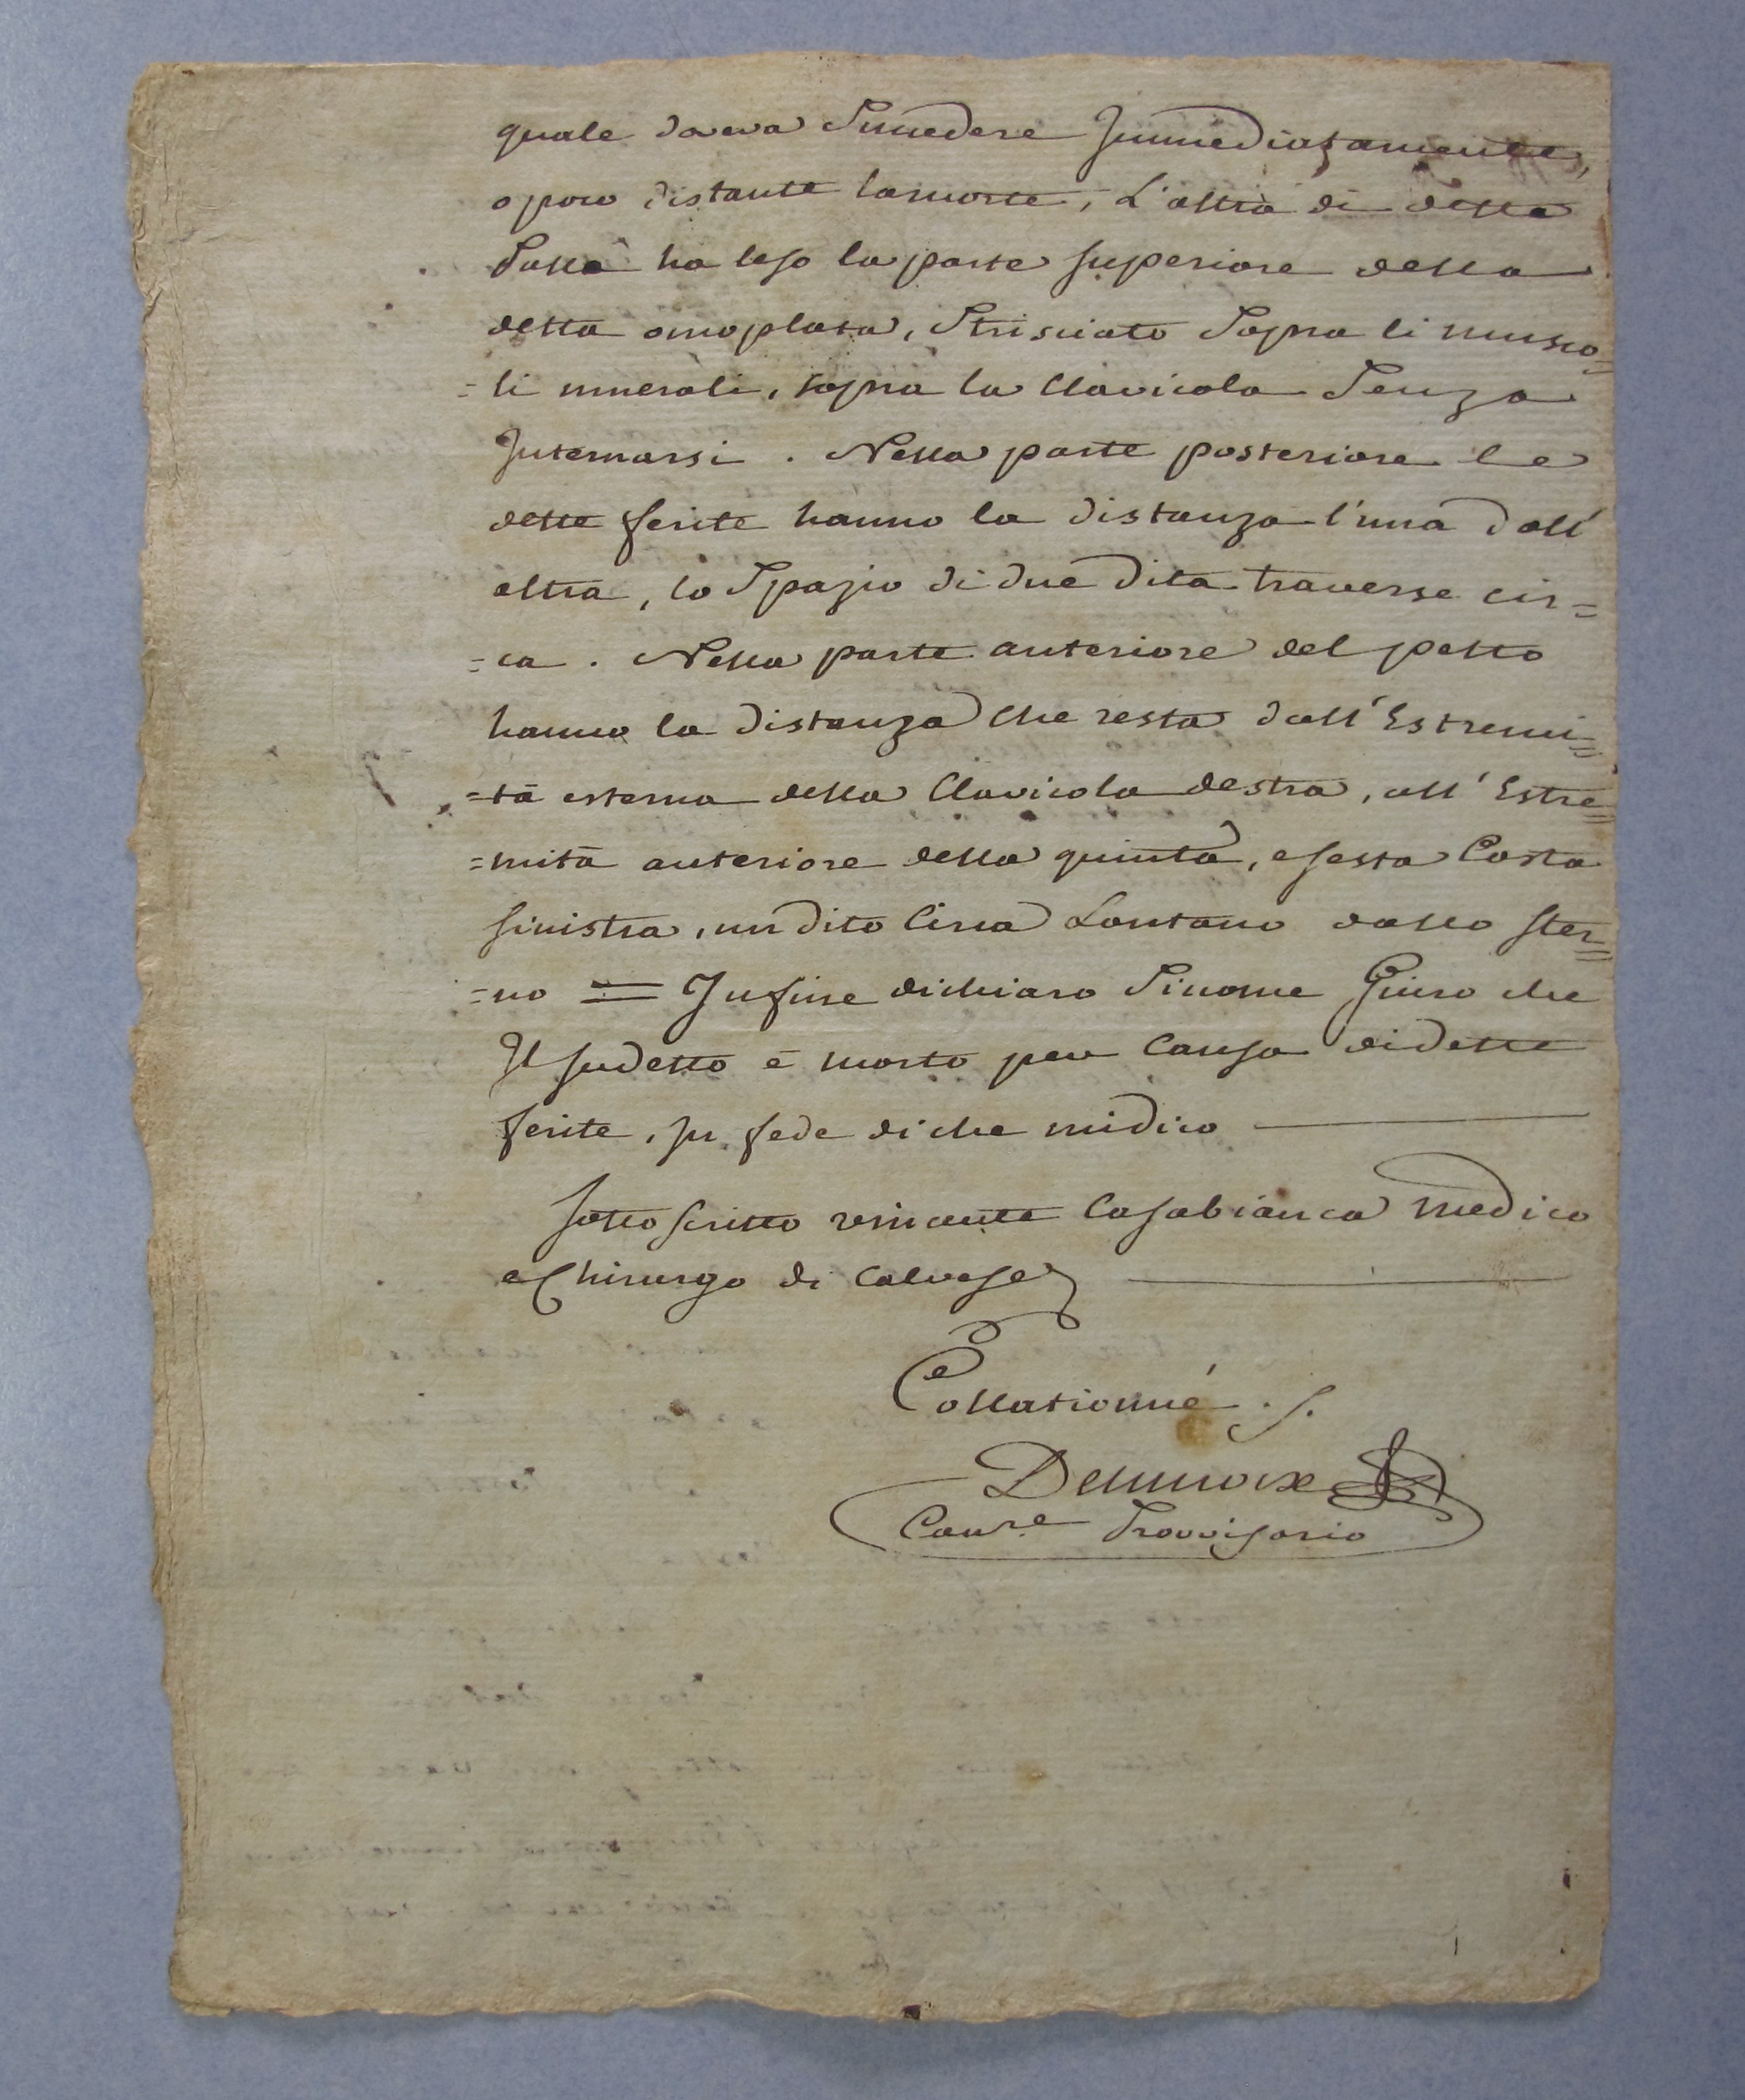 quale doveva Succedere Immediatamente,
o poco distante la morte, L'altra di dette
Palle ha leso la parte superiore della
detta omoplata, Strisciato Sopra li musco=
=li umerali, sopra la Clavicola Senza
Internarsi. Nella parte posteriore le
dette ferite hanno la distanza l'una dall'
altra, lo Spazio di due dita traverse cir=
=ca. Nella parte anteriore del petto
hanno la distanza che resta dall'Estremi=
=tà esterna della Clavicola destra, all'Estre=
=mità anteriore della quinta, e sesta Costa
sinistra, un dito Circa Lontano dallo ster=
=no = In fine dichiaro Sicome Giuro che
Il sudetto è morto per Causa di dette
ferite, In fede di che mi dico
sottoscritto vincente Casabianca Medico
e Chirurgo di Calvese
Collationné
Provisorio